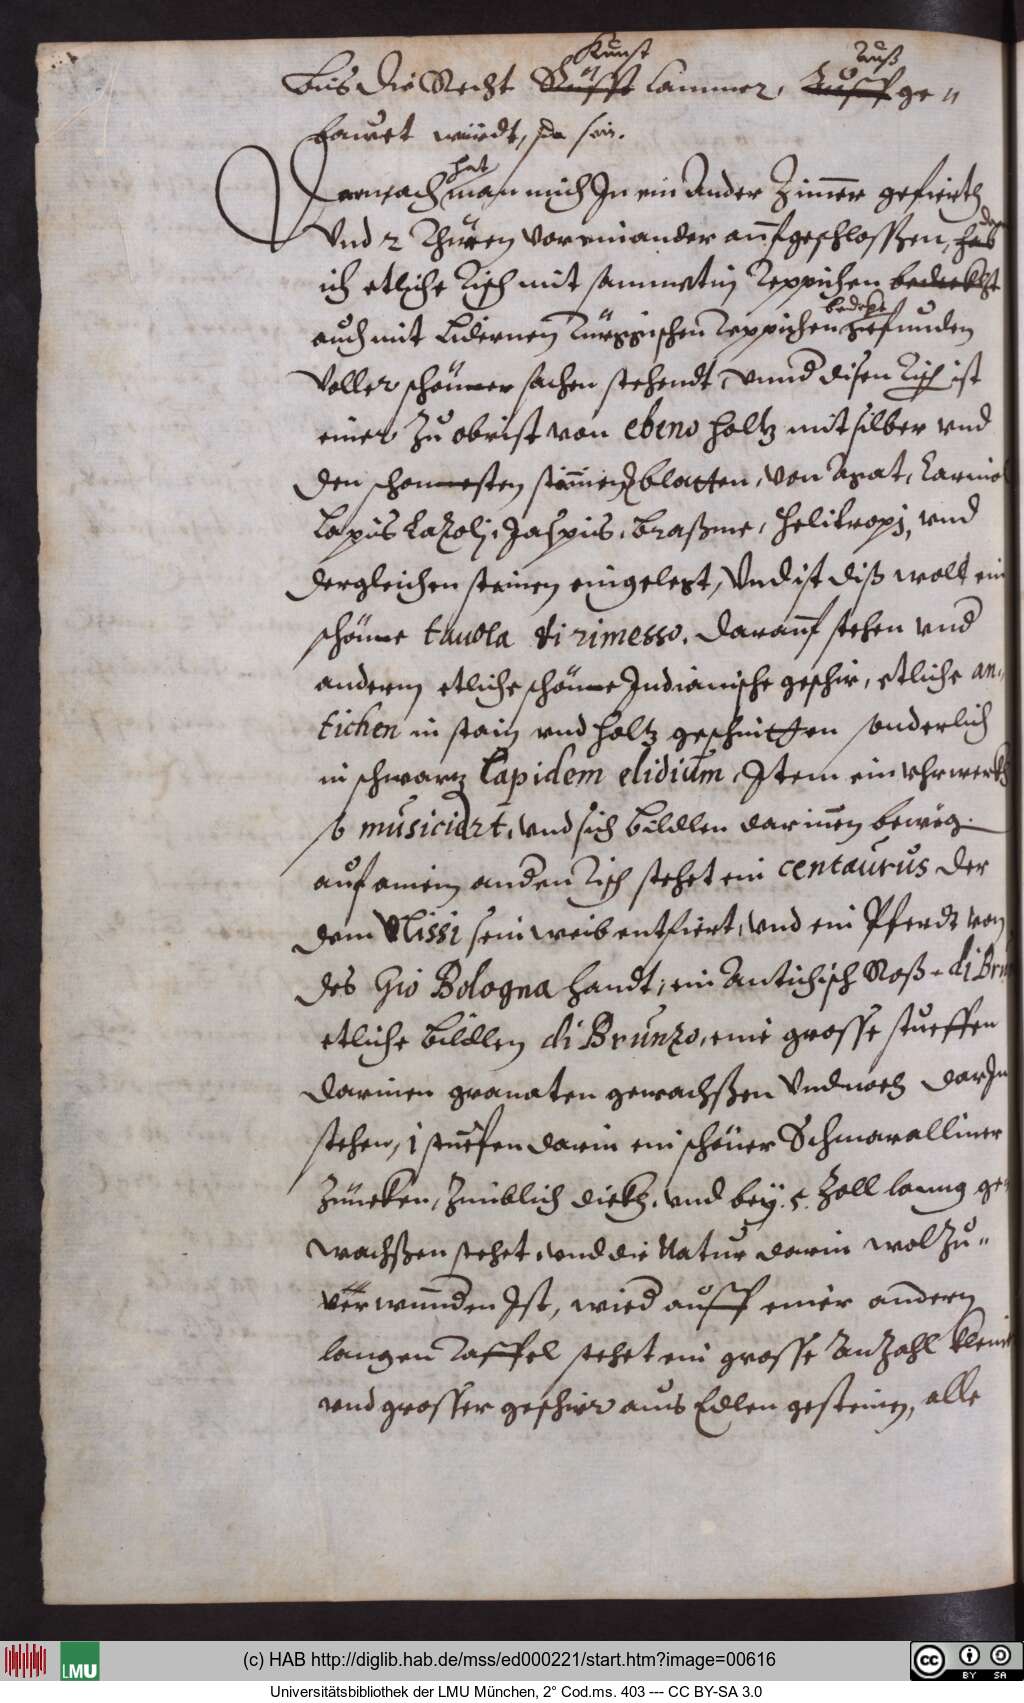 Kunst
auß
bis die Recht Kunst Cammer, ausf ge〃
bawet würdt, so sein.
hat
Darnach man mich In ein Ander Zimmer gefierth
Vnd 2 Thüren vor einander auffgeschlossen, hab
ich etliche Tisch mit sammetin Teppichen bedeckht
bedekt
auch mit Lidernen Türggischen Teppichen gefunden
voller schöner sachen stehendt, vnnd disen Tisch ist
einer zu obrist von ebeno holtz mit silber vnd
den schonnesten stainen blatten, von Agat, Carniol
Lapis Lazolj, Jaspis, braßme, Helitropj, vnd
dergleichen steinen eingelegt, Vnd ist diß wolt ein
schöne tauola di rimesso. darauff stehen vnd
anderm etliche schöne Indianische geschir, etliche an,
tichen in stain vnd holtz geschnitten sonderlich
in schwartz Lapidem elidium, Item ein vhrwerkh
so musiciert, vnd sich bildlen darinnen beweg.
auf ainem anden Tisch stehet ein centaurus der
dem Vlissi sein weib entfiert, vnd ein Pferdt von
des Gio Bologna handt, ein Antichisch Roß di Brun
etliche bildlen di Brunzo, eine grosse stueffen
darinen granaten gewachßen Vnd noch dar In
stehen, 1 stuefen darin ein schöner Schmaralliner
Züncken, Zimblich dickh, vnd bey 5. Zoll lanng ge
wachßen stehet, vnd die Natur darin wol zu〃
verwunnden Ist, wied ausf einer andern
langen Taffel stehet ein grosse Anzahl kleine
vnd grosser geschier aus Edlen gesteinen, alle
(c) HAB http://diglib.hab.de/mss/ed000221/start.htm?image=00616
LMU
cc BY SA
Universitätsbibliothek der LMU München, 2° Cod.ms. 403 --- CC BY-SA 3.0